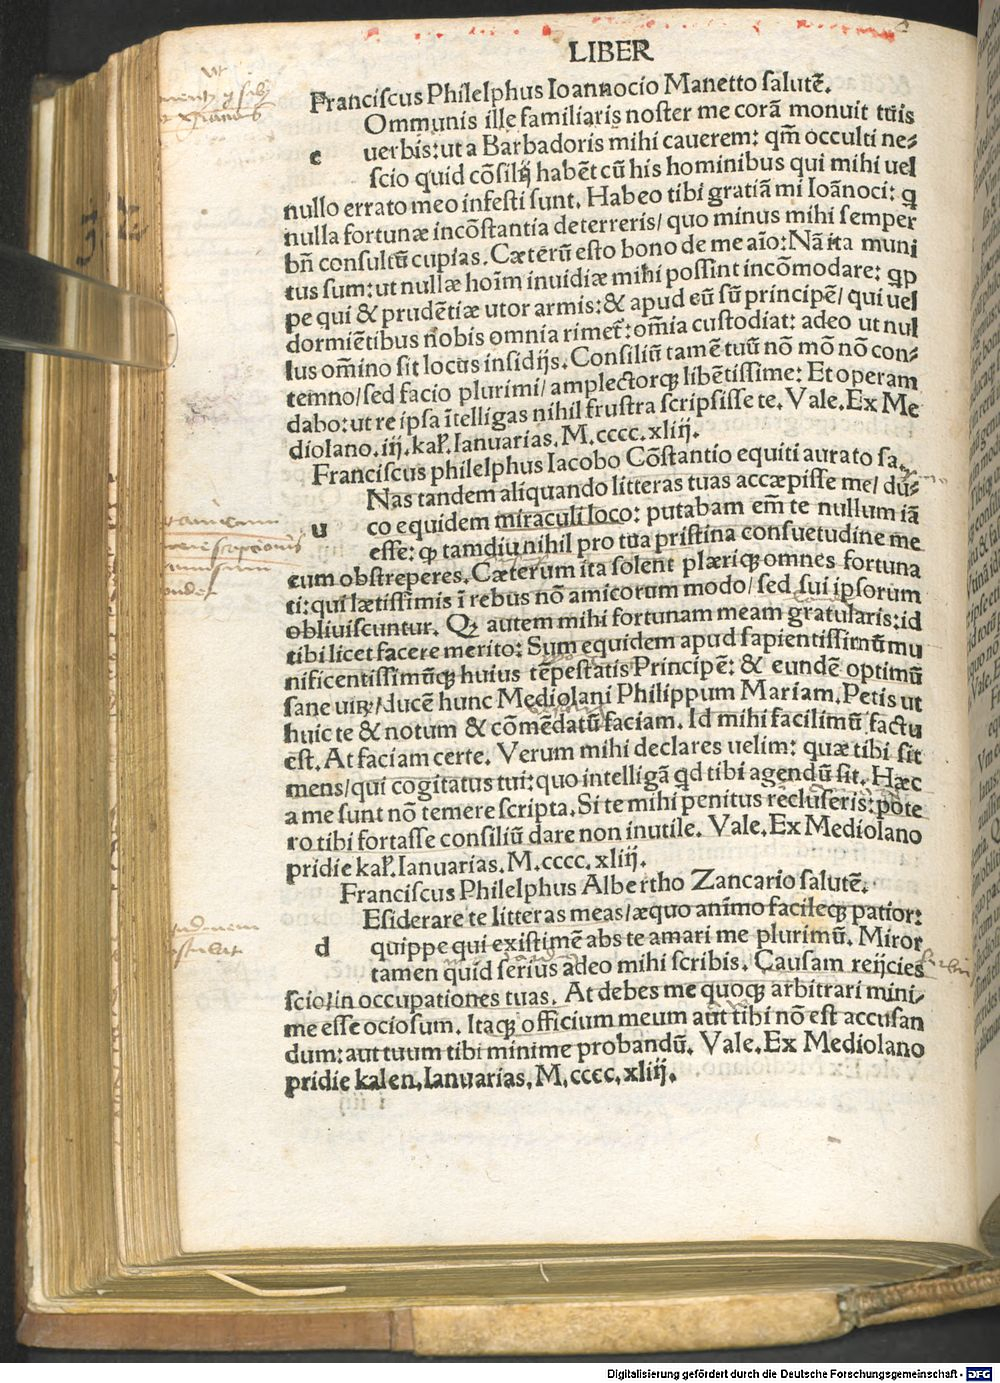 LIBER
Franciscus Philelphus Ioannocio Manetto salutē.
Ommunis ille familiaris noster me corā monuit tuis
c uerbis: ut a Barbadoris mihi cauerem: qm̄ occulti ne⸗
scio quid cōsilij habēt cū his hominibus qui mihi uel
nullo errato meo infesti sunt. Habeo tibi gratiā mi Ioānoci: ꝙ
nulla fortunæ incōstantia deterreris/ quo minus mihi semper
bn̄ consultū cupias. Cæterū esto bono de me aīo: Nā ita muni
tus sum: ut nullæ hoīm inuidiæ mihi possint incōmodare: ꝙp
pe qui & prudētiæ utor armis: & apud eū sū principē/ qui uel
dormiētibus nobis omnia rimet̄: oīa custodiat: adeo ut nul
lus oīno sit locus insidijs. Consiliū tamē tuū nō mō nō con⸗
temno/ sed facio plurimi/ amplectorꝗ libētissime: Et operam
dabo: ut re ipsa ītelligas nihil frustra scripsisse te. Vale. Ex Me
diolano. iij. kaƚ. Ianuarias. M. cccc. xliij.
Franciscus philelphus Iacobo Cōstantio equiti aurato sa.
Nas tandem aliquando litteras tuas accæpisse me/ du⸗
u co equidem miraculi loco: putabam em̄ te nullum iā
esse: ꝙ tamdiu nihil pro tua pristina consuetudine me
cum obstreperes. Cæterum ita solent plæriꝗ omnes fortuna
ti: qui lætissimis ī rebus nō amicorum modo/ sed sui ipsorum
obliuiscuntur. Qꝫ autem mihi fortunam meam gratularis: id
tibi licet facere merito: Sum equidem apud sapientissimū mu
nificentissimūꝗ huius tēpestatis Principē: & eundē optimū
sane uiꝝ/ ducē hunc Mediolani Philippum Mariam. Petis ut
huic te & notum & cōmēdatū faciam. Id mihi facilimū factu
ēst. At faciam certe. Verum mihi declares uelim: quæ tibi sit
mens/ qui cogitatus tui: quo intelligā qd tibi agendū sit. Hæc
a me sunt nō temere scripta. Si te mihi penitus recluseris: pote
ro tibi fortasse consiliū dare non inutile. Vale. Ex Mediolano
pridie kaƚ. Ianuarias. M. cccc. xliij.
Franciscus Philelphus Albertho Zancario salutē.
Esiderare te litteras meas/ æquo animo facileꝗ patior:
d quippe qui existimē abs te amari me plurimū. Miror
tamen quid serius adeo mihi scribis. Causam reijcies
scio/ in occupationes tuas. At debes me quoꝗ arbitrari mini⸗
me esse ociosum. Itaꝗ officium meum aut tibi nō est accusan
dum: aut tuum tibi minime probandū. Vale. Ex Mediolano
pridie kalen. Ianuarias. M. cccc. xliij.
Digitalisierung gefördert durch die Deutsche Forschungsgemeinschaft - DFG